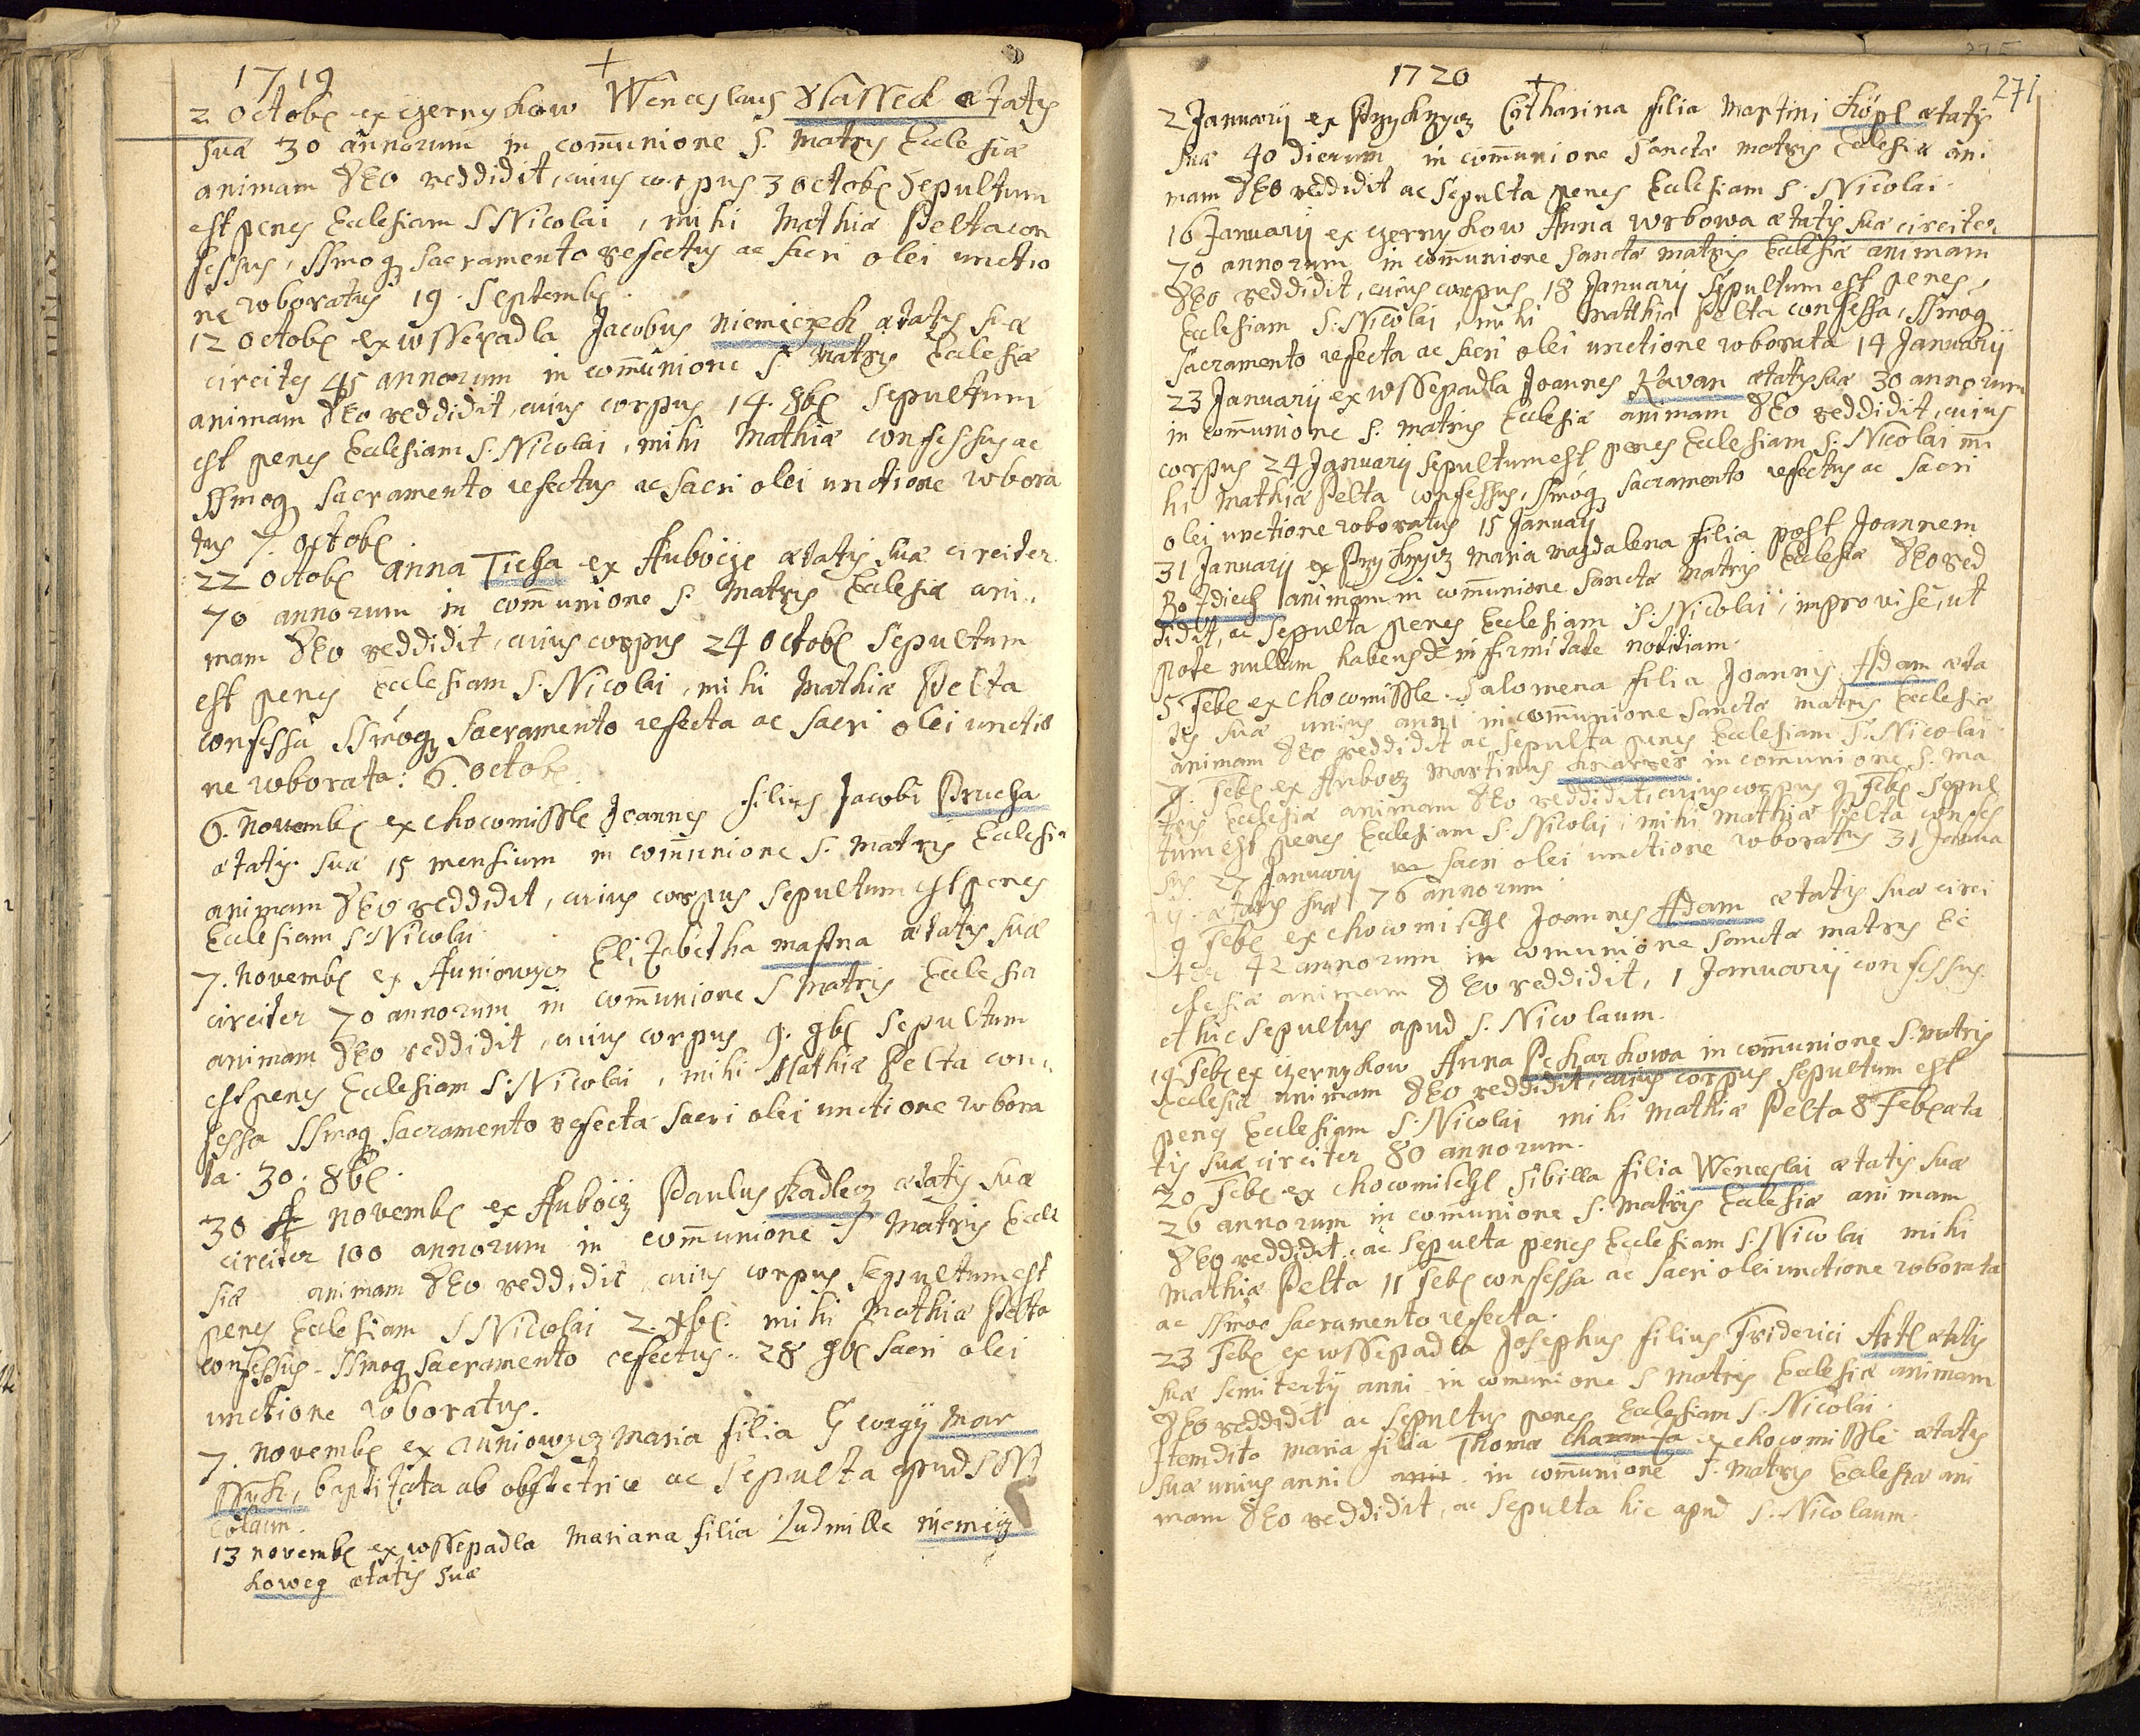 1719 +
2 Octobr ex czernychow Wenceslaus Wlasseck ætatis
suæ 30 annorum in com̄unione S. Matris Ecclesiæ
animam Deo reddidit, cuius corpus 3 Octobr sepultum
est penes Ecclesiam S Nicolai, mihi Mathiæ Pelta con
fessus, SSmoq sacramento refectus ac sacri olei unctio
ne roboratus 19. Septembr.
12 Octobr ex wssepadla Jacobus Niemeczeck ætatis suæ
circiter 45 annorum in com̄unione S. Matris Ecclesiæ
animam Deo reddidit, cuius corpus 14. 8br sepultum
est penes Ecclesiam S. Nicolai, mihi Mathiæ confessus ac
SSmoq sacramento refectus ac sacri olei unctione robora
tus 7. Octobr
22 Octobr Anna Ticha ex Auboczc ætatis suæ circiter
70 annorum in com̄unione S. Matris Ecclesiæ ani„
mam Deo reddidit, cuius corpus 24 Octobr sepultum
est penes Ecclesiam S. Nicolai, mihi Mathiæ Pelta
confessa SSmoq sacramento refecta ac sacri olei unctio
ne roborata: 6. Octobr
6. Novembr ex chocomissle Joannes filius Jacobi Prucha
ætatis suæ 15 mensium in com̄unione S. Matris Ecclesiæ
animam Deo reddidit, cuius corpus sepultum est penes
Ecclesiam S. Nicolai
7. Novembr ex Auniowycz Elizabetha mastna ætatis suæ
circiter 70 annorum in com̄unione S Matris Ecclesiæ
animam Deo reddidit, cuius corpus 9. 9br sepultum
est penes Ecclesiam S. Nicolai, mihi Mathiæ Pelta con„
fessa SSmoq sacramento refecta sacri olei unctione robora
ta. 30. 8br.
30 Novembr ex Auboicz Paulus Kadlecz ætatis suæ
circiter 100 annorum in com̄unione S Matris Eccle
siæ animam Deo reddidit cuius corpus sepultum est
penes Ecclesiam S Nicolai 2. xbr. mihi Mathiæ Pelta
confessus SSmoq sacramento refectus. 28 9br sacri olei
unctione roboratus.
7. Novembr ex Auniowycz Maria filia Georgij Mar
baptizata ab obstetrice ac sepulta apud S Ni
colaum.
13 Novembr ex wssepadla Mariana filia Ludmille niemecz
koweg ætatis suæ
1720 + 271
2 Januarij ex Przychzycz Catharina filia Martini Köpl ætatis
suæ 40 dierum in com̄unione Sanctæ matris Ecclesiæ ani
mam Deo reddidit ac sepulta penes Ecclesiam S. Nicolai.
16 Januarij ex czernychow Anna Wrbowa ætatis suæ circiter
70 annorum in com̄unione Sanctæ matris Ecclesiæ animam
Deo reddidit, cuius corpus 18 Januarij sepultum est penes
Ecclesiam S. Nicolai, mihi Matthiæ Pelta confessa, SSmoq
Sacramento refecta ac sacri olei unctione roborata 14 Januarij
23 Januarij ex wssepadla Joannes Kavan ætatis suæ 30 annorum
in com̄unione S. matris Ecclesiæ animam Deo reddidit, cuius
corpus 24 January sepultum est penes Ecclesiam S. Nicolai mi
hi Mathiæ Pelta confessus, SSmoq sacramento refectus ac sacri
olei unctione roboratus 15 January
31 Januarij ex Przychzycz Maria Magdalena filia post Joannem
animam in com̄unione Sanctæ Matris Ecclesiæ Deo red
didit, ac sepulta penes Ecclesiam S. Nicolai, improvise, ut
pote nullam habens de infirmitate notitiam.
5 Febr ex chocomissle Salomena filia Joannis Adam æta
tis suæ unius anni in com̄unione Sanctæ matris Ecclesiæ
animam Deo reddidit ac sepulta penes Ecclesiam S. Nicolai
7. Febr ex Aubocz Martinus in com̄unione S. Ma
tris Ecclesiæ animam Deo reddidit, cuius corpus 9 Febr sepul
tum est penes Ecclesiam S. Nicolai, mihi Mathiæ Pelta confes
sus 27 Januarij sacri olei unctione roboratus 31 Janua
rij. ætatis suæ 76 annorum.
9 Febr ex chocomischl Joannes Adam ætatis suæ circi
ter 42 annorum in comunione Sanctæ matris Ec
clesiæ animam Deo reddidit, 1 Januarij confessus.
et hic sepultus apud S. Nicolaum.
19 Febr ex czernychow Anna Pekarkowa in com̄unione S. matris
Ecclesiæ animam Deo reddidit, cuius corpus sepultum est
penes Ecclesiam S. Nicolai mihi Mathiæ Pelta 8 Febr æta
tis suæ circiter 80 annorum.
20 Febr ex chocomischl Sibilla filia Wenceslai ætatis suæ
26 annorum in com̄unione S. Matris Ecclesiæ animam
Deo reddidit, ac sepulta penes Ecclesiam S. Nicolai mihi
Mathiæ Pelta 11 Febr confessa ac sacri olei unctione roborata
ac SSmoq sacramento refecta.
23 Febr ex wssepadla Josephus filius Friderici Artl ætatis
suæ semitertij anni in com̄unione S Matris Ecclesiæ animam
Deo reddidit ac sepultus penes Ecclesiam S. Nicolai.
Item dito Maria filia Thomæ Charamsa ex chocomissle ætatis
suæ unius anni in com̄unione S. Matris Ecclesiæ ani
mam Deo reddidit, ac sepulta hic apud S. Nicolaum.